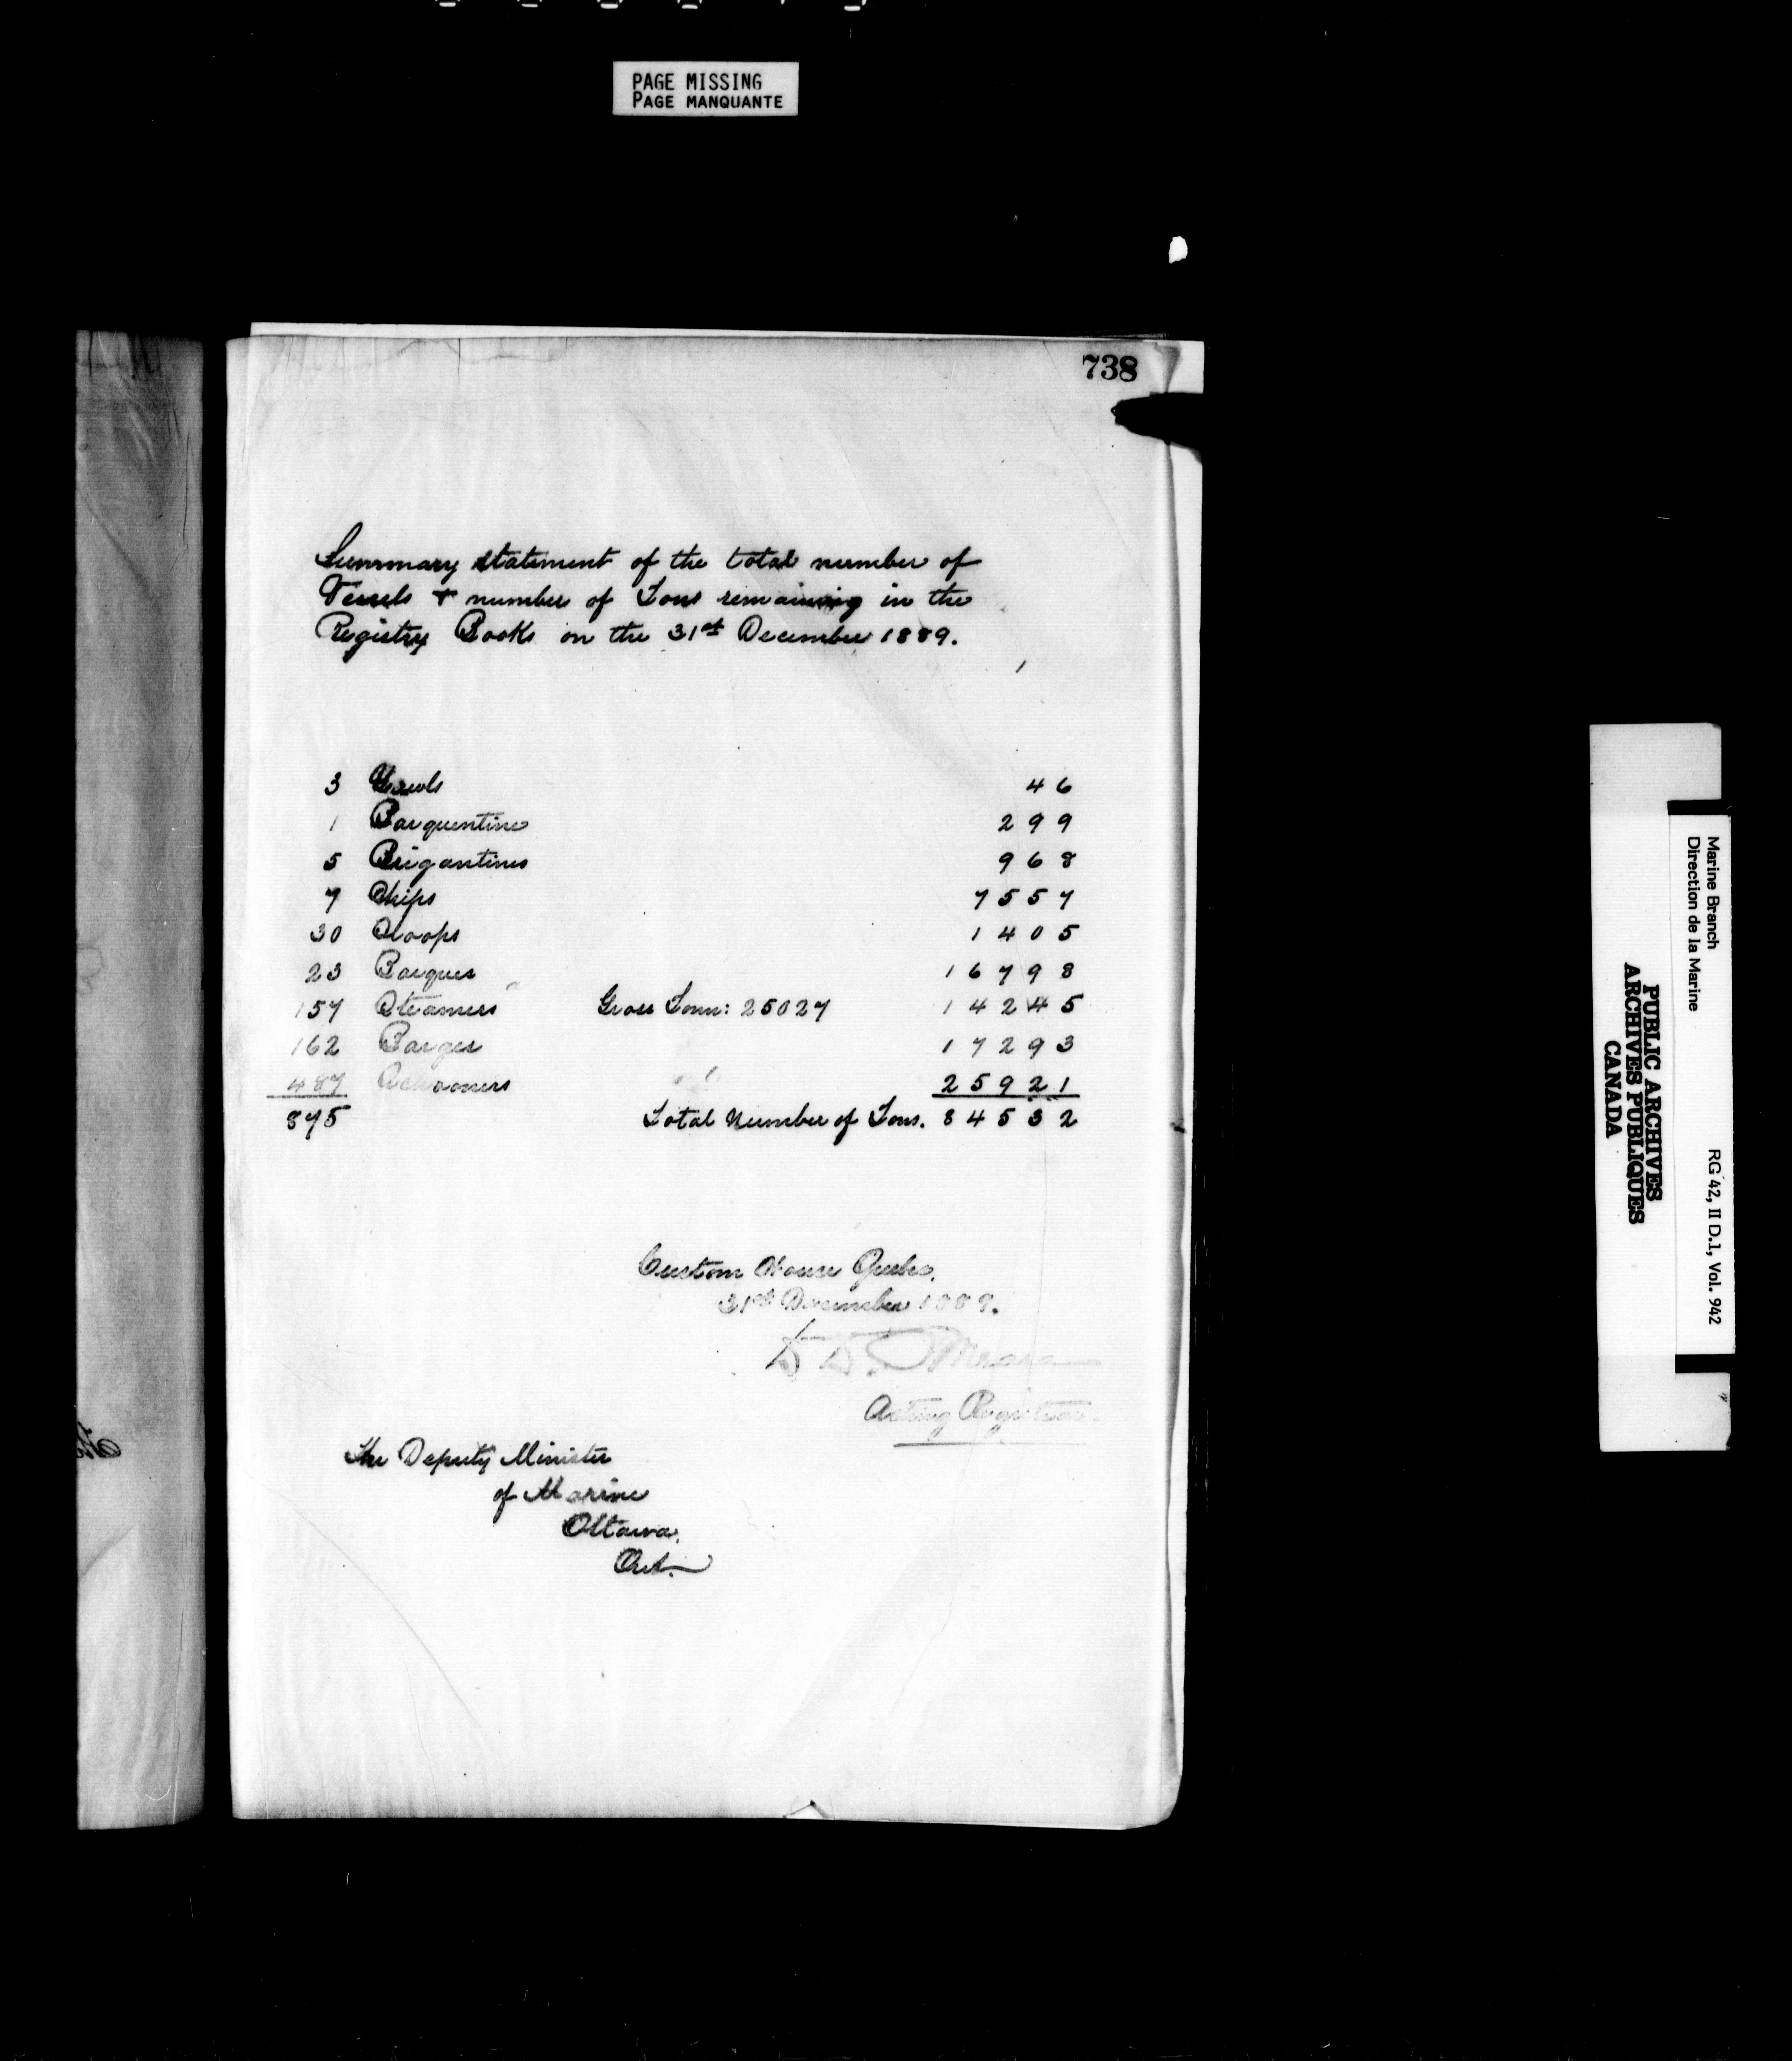 PAGE MISSING
PAGE MANQUANTE
738
Summary statement of the total number of
Vessels + number of Tons remaining in the
Registry Books on the 31st December 1889.
3 Yawls 46
1 Barquentine 299
5 Brigantines 968
7 Ships 7557
30 Sloops 1405
23 Barques 16798
157 Steamers Gross Tonn: 25027 14245
162 Barges 17293
487 Schooners 25921
875 Total Number of Tons. 84532
Custom House Quebec,
31st December 1889.
D D. O'Meara
Acting Registrar.
The Deputy Minister
of Marine
Ottawa,
Ont.
Marine Branch
Direction de la Marine
RG 42, II D.1, Vol. 942
PUBLIC ARCHIVES
ARCHIVES PUBLIQUES
CANADA